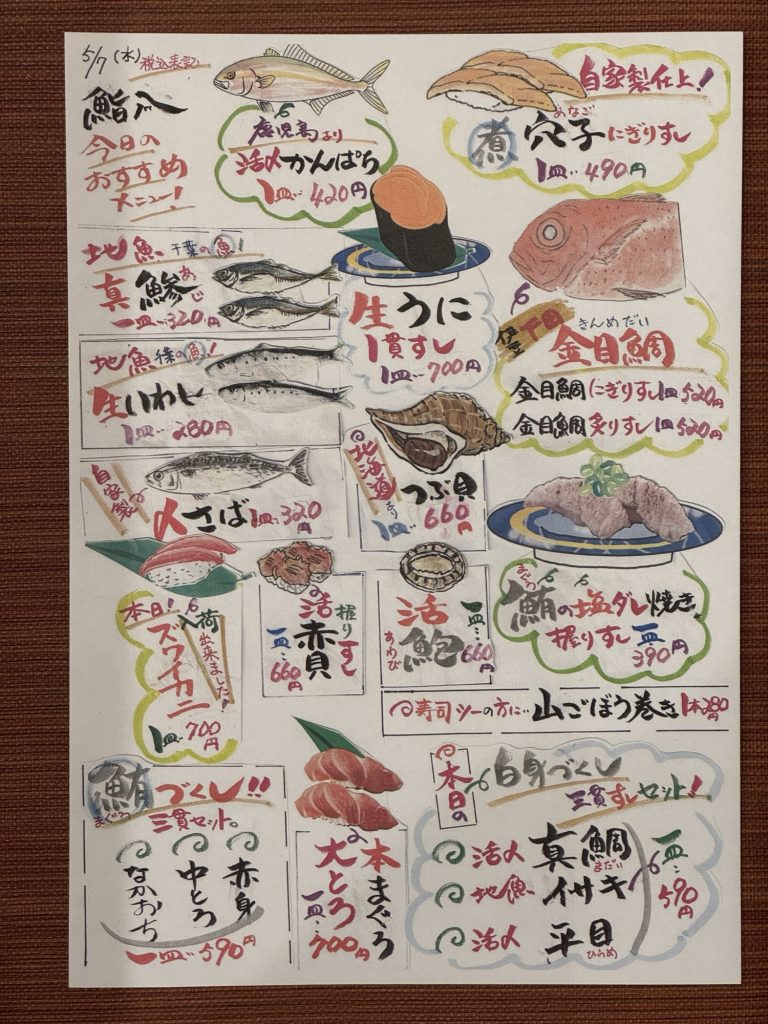 5/7(水)税込表記
鮨八
今日の
おすすめ
メニュー!
鹿児島より
活〆かんぱち
1皿…420円
自家製仕上!
煮穴子にぎりすし
あなご
1皿…490円
地魚千葉の魚!
真鯵
あじ
一皿…320円
生うに
1貫すし
1皿…700円
伊豆下田
きんめだい
金目鯛
金目鯛にぎりすし1皿520円
金目鯛炙りすし1皿520円
地魚千葉の魚!
生いわし
1皿…280円
自家製の
〆さば1皿…320円
北海道より
つぶ貝
1皿…660円
まぐろ
鮪の塩ダレ焼き
握りすし一皿…390円
本日!入荷出来ました!
ズワイガニ
1皿…700円
活赤貝
握りすし
一皿…660円
活鮑
あわび
一皿…660円
寿司ツーの方に…山ごぼう巻き1本280円
鮪づくし!!
まぐろ
三貫セット。
赤身
中とろ
なかおち
一皿…590円
本まぐろ
大とろ
一皿…700円
本日の
白身づくし
三貫すしセット!
活〆真鯛
まだい
地魚イサキ
活〆平目
ひらめ
一皿…590円